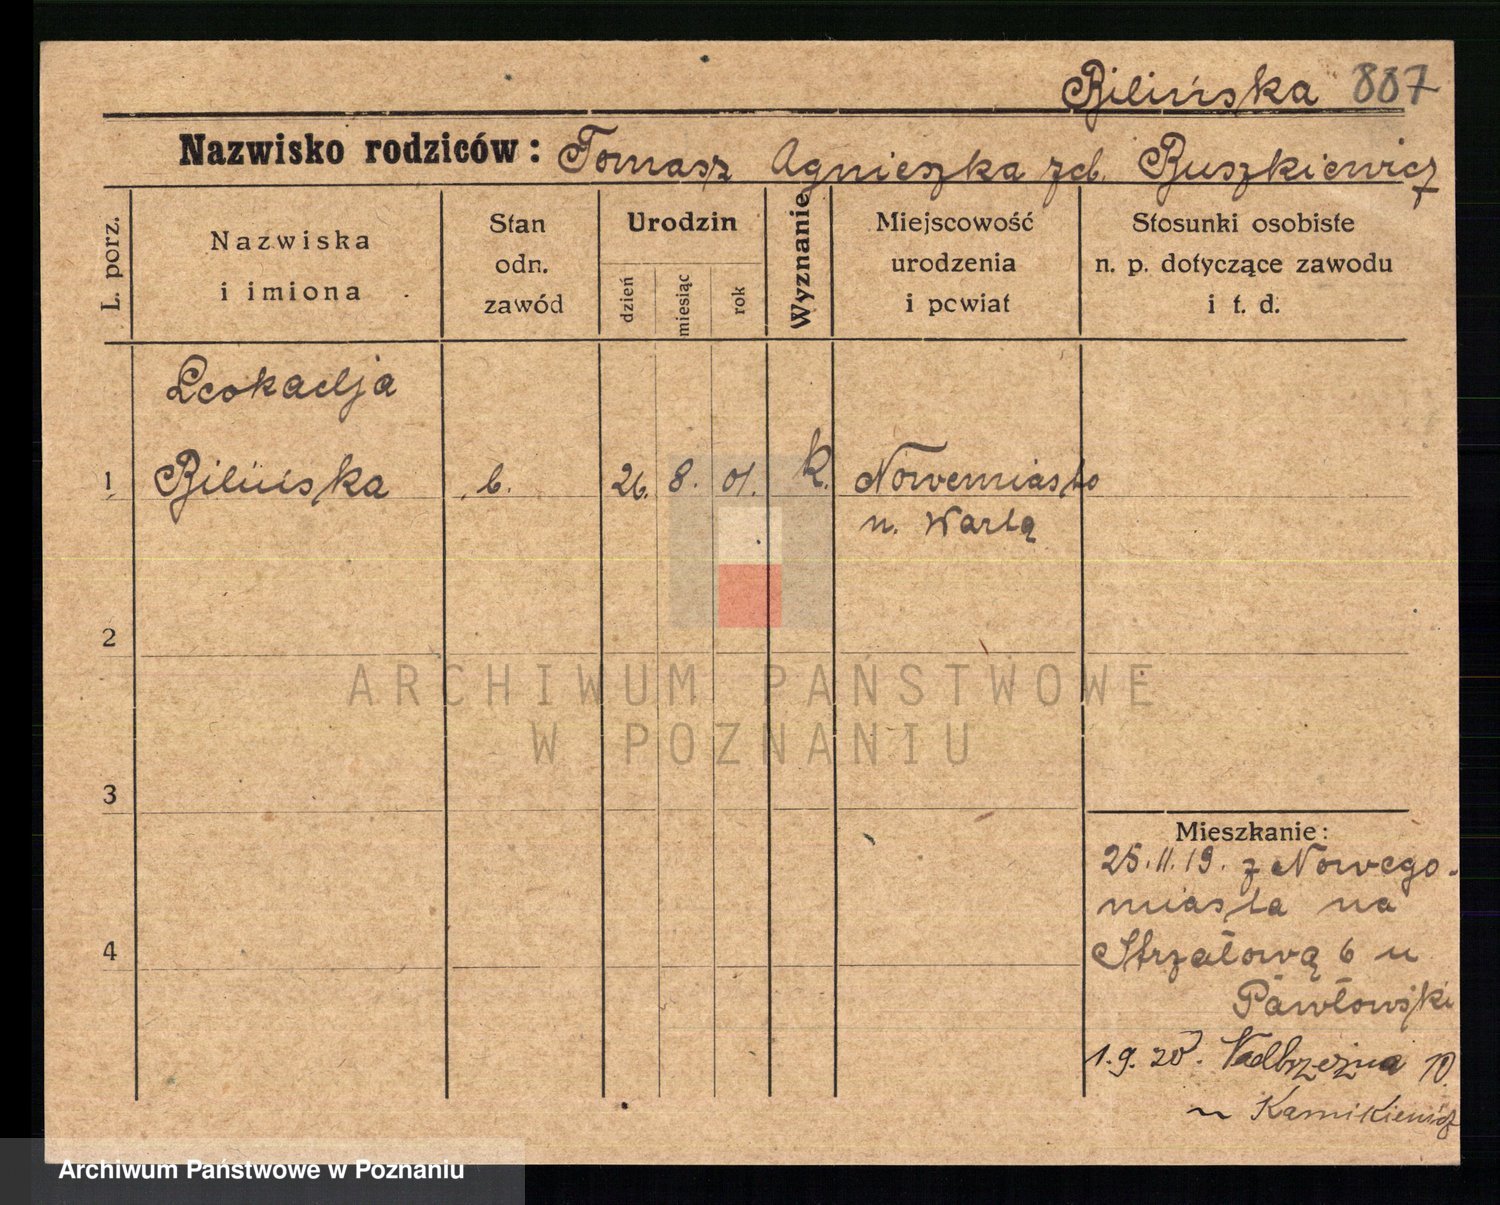 Bilińska 887
Nazwisko rodziców: Tomasz Agnieszka zd. Buszkiewicz
L. porz.
Nazwiska
i imiona
Stan
odn.
zawód
Urodzin
dzień
miesiąc
rok
Wyznanie
Miejscowość
urodzenia
i powiat
Stosunki osobiste
n. p. dotyczące zawodu
i t. d.
Leokadja
1 Bilińska b. 26. 8. 01. k. Nowemiasto
n. Wartą
2
ARCHIWUM PAŃSTWOWE
W POZNANIU
3
Mieszkanie:
25.11.19. z Nowego-
miasta na
4 Strzałową 6 u
Pawłowski
1.9.20. Nadbrzeżna 10.
u
Archiwum Państwowe w Poznaniu